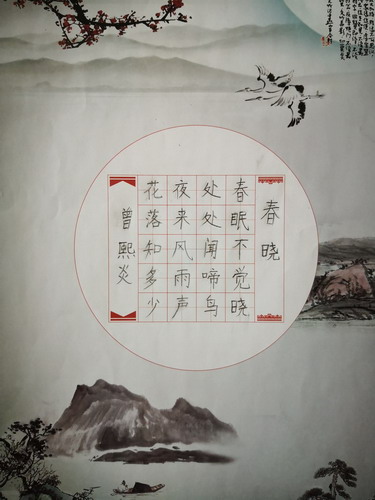 春晓
春眠不觉晓
处处闻啼鸟
夜来风雨声
花落知多少
曾熙炎